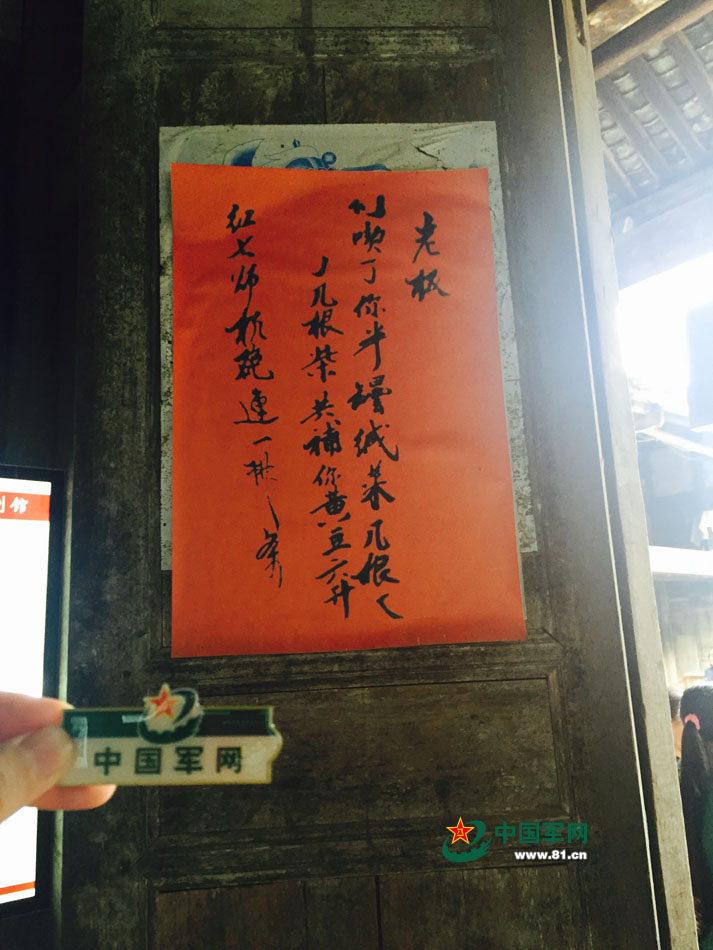 老板
喫了你半罈菜几根
几根柴共補你黄豆六升
红七师机炮连一排条
馆
中国军网
中国军网
www.81.cn